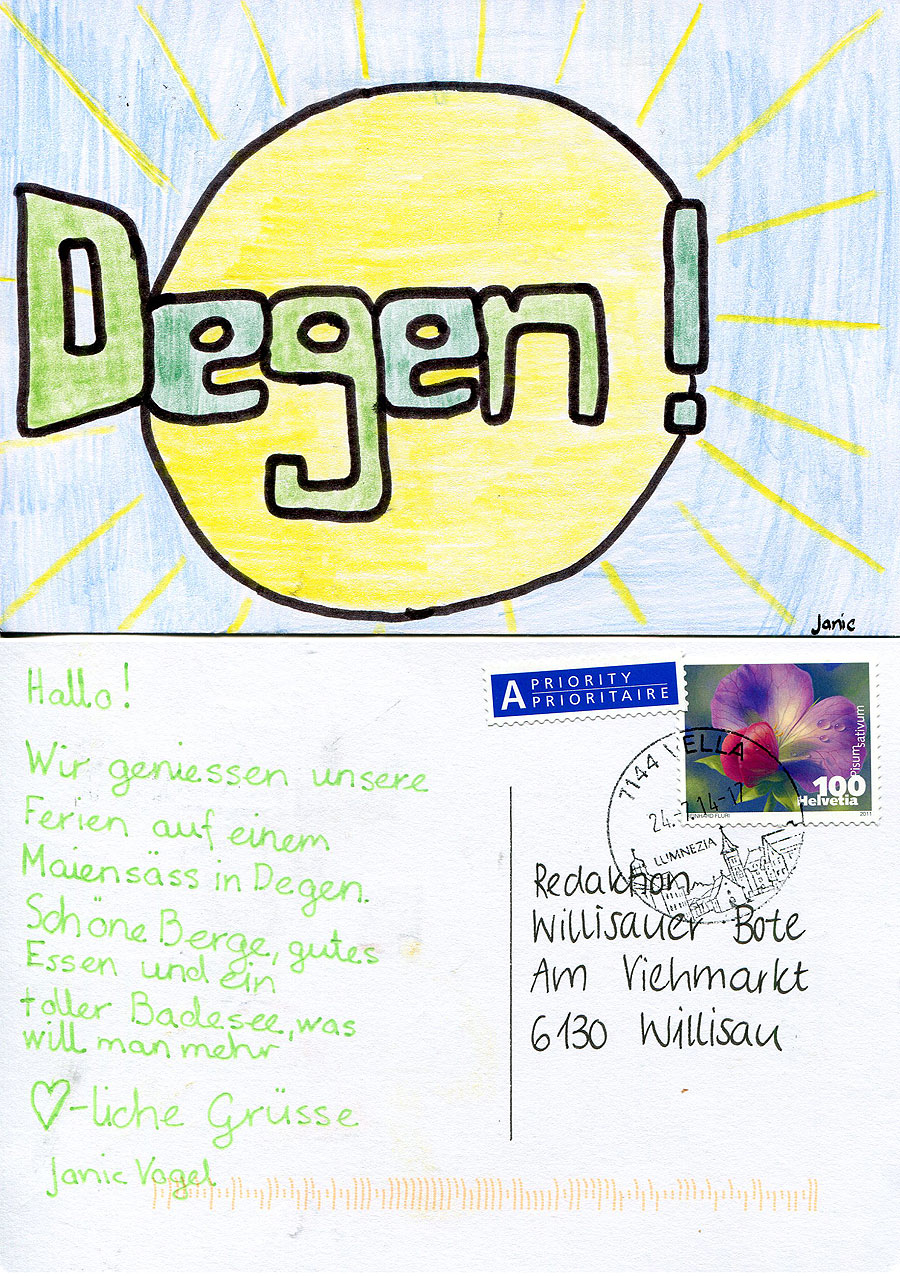 Degen!
Janic
Hallo!
Wir geniessen unsere
Ferien auf einem
Maiensäss in Degen.
Schöne Berge, gutes
Essen und ein
toller Badesee, was
will man mehr
♡-liche Grüsse
Janic Vogel
A PRIORITY
PRIORITAIRE
Pisum
sativum
100
Helvetia
2011
7144 VELLA
24.-7.14-17
LUMNEZIA
Redaktion
Willisauer Bote
Am Viehmarkt
6130 Willisau